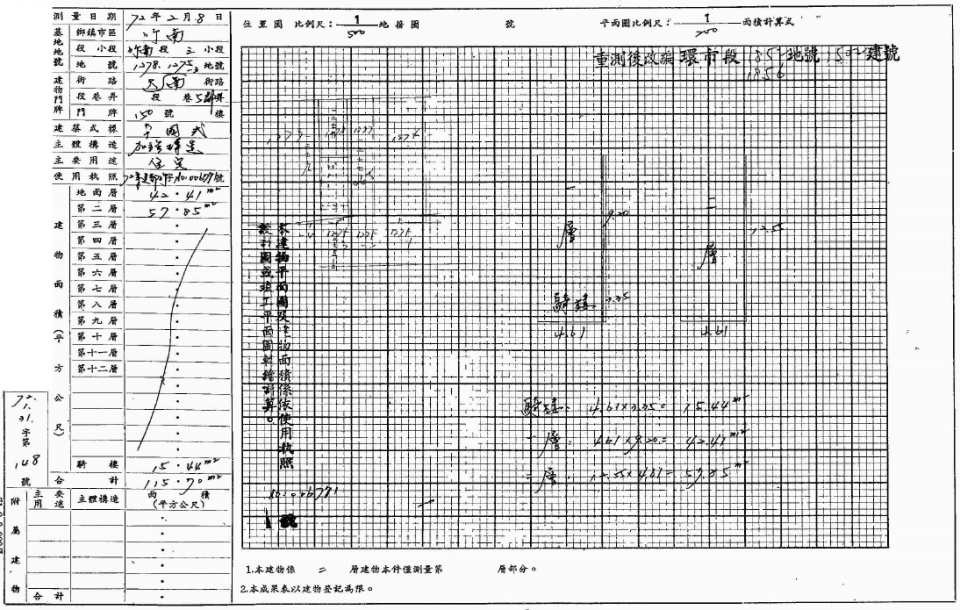 測量日期 72年2月8日
基地地號
鄉鎮市區 竹南
段小段 竹南段 三小段
地號 1278.1275-3地號
建物門牌
街路 大同 街路
段巷弄 段 巷5弄
門牌 150號 樓
建築式樣
主體構造 加強磚造
主要用途 住宅
使用執照
建物面積(平方公尺)
地面層 42.41m²
第二層 57.85m²
第三層
第四層
第五層
第六層
第七層
第八層
第九層
第十層
第十一層
第十二層
騎樓 15.44m²
合計 115.70m²
附屬建物
主要用途 主體構造 面積(平方公尺)
合計
72.
1.
31.
字第
148
號
位置圖 比例尺:1/500 地籍圖 號 平面圖比例尺:1/200 面積計算式
重測後改編 環市段 1857地號 1502建號
1856
1279 1278 1277 1276
一層
9.20
騎樓 3.35
4.61
二層
12.55
4.61
本建物平面圖及建物面積係依使用執照
設計圖或竣工平面圖轉繪計算。
No.006771
騎樓= 4.61×3.35= 15.44m²
一層= 4.61×9.20= 42.41m²
二層= 12.55×4.61= 57.85m²
1.本建物係 二 層建物本件僅測量第 層部分。
2.本成果表以建物登記為限。